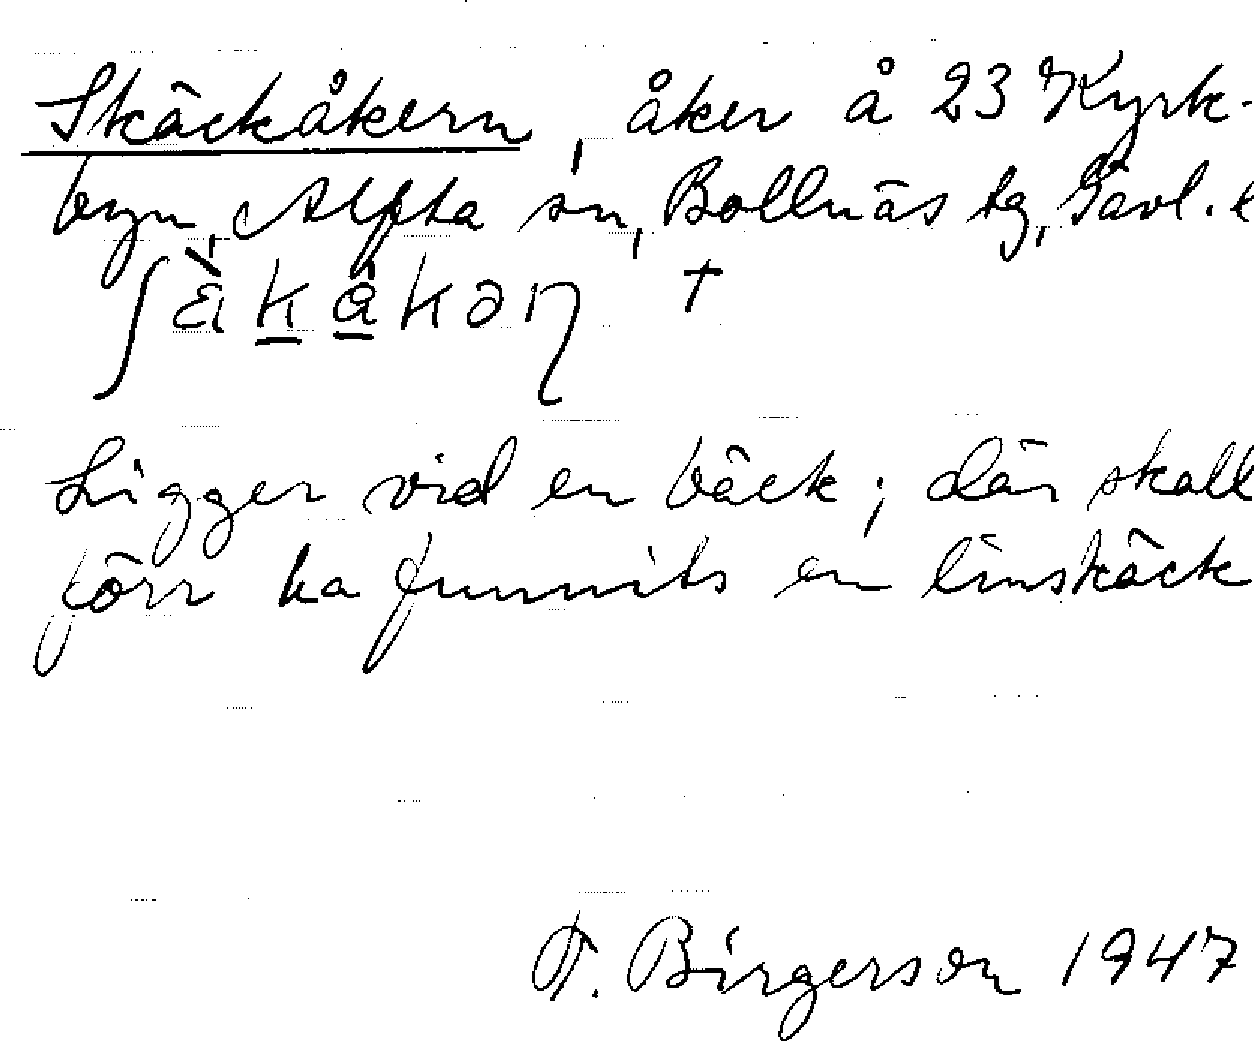 Skäckåkern, åker å 23 Kyrk-
byn, Alfta sn, Bollnäs tg, Gävl. l
ʃäkåkəŋ †
Ligger vid en bäck; där skall
förr ha funnits en linskäck
T. Birgerson 1947